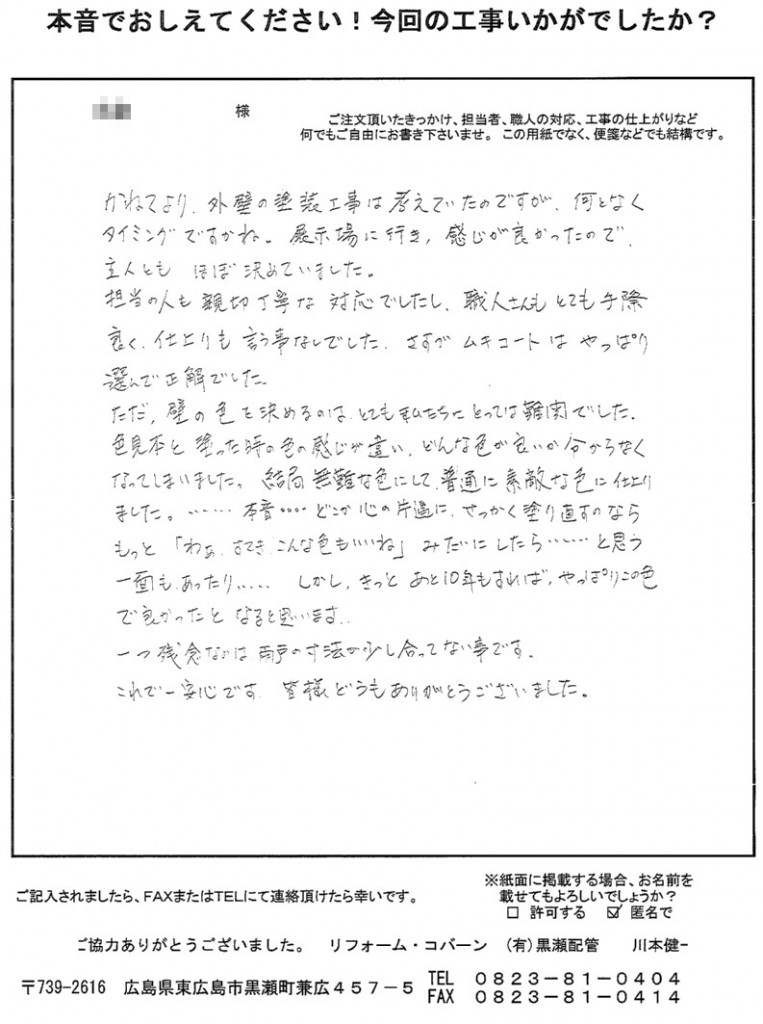 本音でおしえてください！今回の工事いかがでしたか？
様
ご注文頂いたきっかけ、担当者、職人の対応、工事の仕上がりなど
何でもご自由にお書き下さいませ。この用紙でなく、便箋などでも結構です。
かねてより、外壁の塗装工事は考えていたのですが、何となく
タイミングですかね。展示場に行き、感じが良かったので、
主人とも ほぼ決めていました。
担当の人も親切丁寧な対応でしたし、職人さんもとても手際
良く、仕上りも言う事なしでした。さすが ムキコートは やっぱり
選んで正解でした。
ただ、壁の色を決めるのは、とても私たちにとっては難関でした。
色見本と塗った時の色の感じが違い、どんな色が良いか分からなく
なってしまいました。結局無難な色にして、普通に素敵な色に仕上り
ました。……本音…… どこか心の片隅に、せっかく塗り直すのなら
もっと「わぁ、すてき、こんな色もいいね」みたいにしたら……と思う
一面も、あったり…… しかし、きっと あと10年もすれば、やっぱりこの色
で良かったと なると思います。
一つ残念なのは雨戸の寸法が少し合ってない事です。
これで一安心です。皆様どうもありがとうございました。
ご記入されましたら、FAXまたはTELにて連絡頂けたら幸いです。
※紙面に掲載する場合、お名前を
載せてもよろしいでしょうか？
□ 許可する ☑ 匿名で
ご協力ありがとうございました。 リフォーム・コバーン (有)黒瀬配管 川本健一
〒739-2616 広島県東広島市黒瀬町兼広４５７－５
TEL ０８２３－８１－０４０４
FAX ０８２３－８１－０４１４